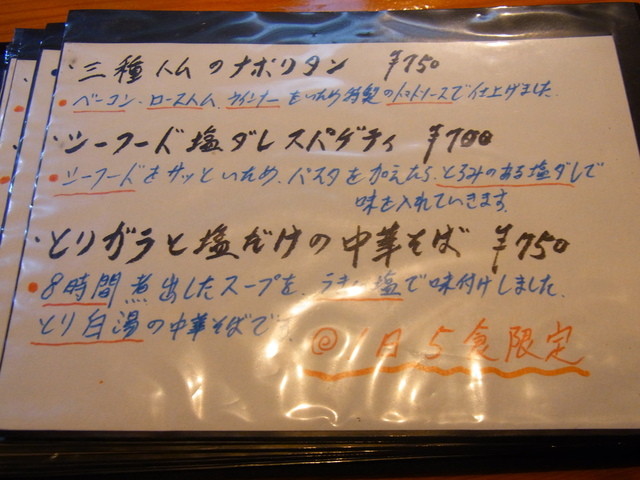 ・三種ハムのナポリタン ¥750
・ベーコン、ロースハム、ウインナーをいため特製のトマトソースで仕上げました。
・シーフード塩ダレスパゲティ ¥700
・シーフードをサッといため、パスタを加えたら、とろみのある塩ダレで
味を入れていきます。
・とりガラと塩だけの中華そば ¥750
・8時間煮出したスープを、うまい塩で味付けしました。
とり白湯の中華そばです。
◎1日5食限定